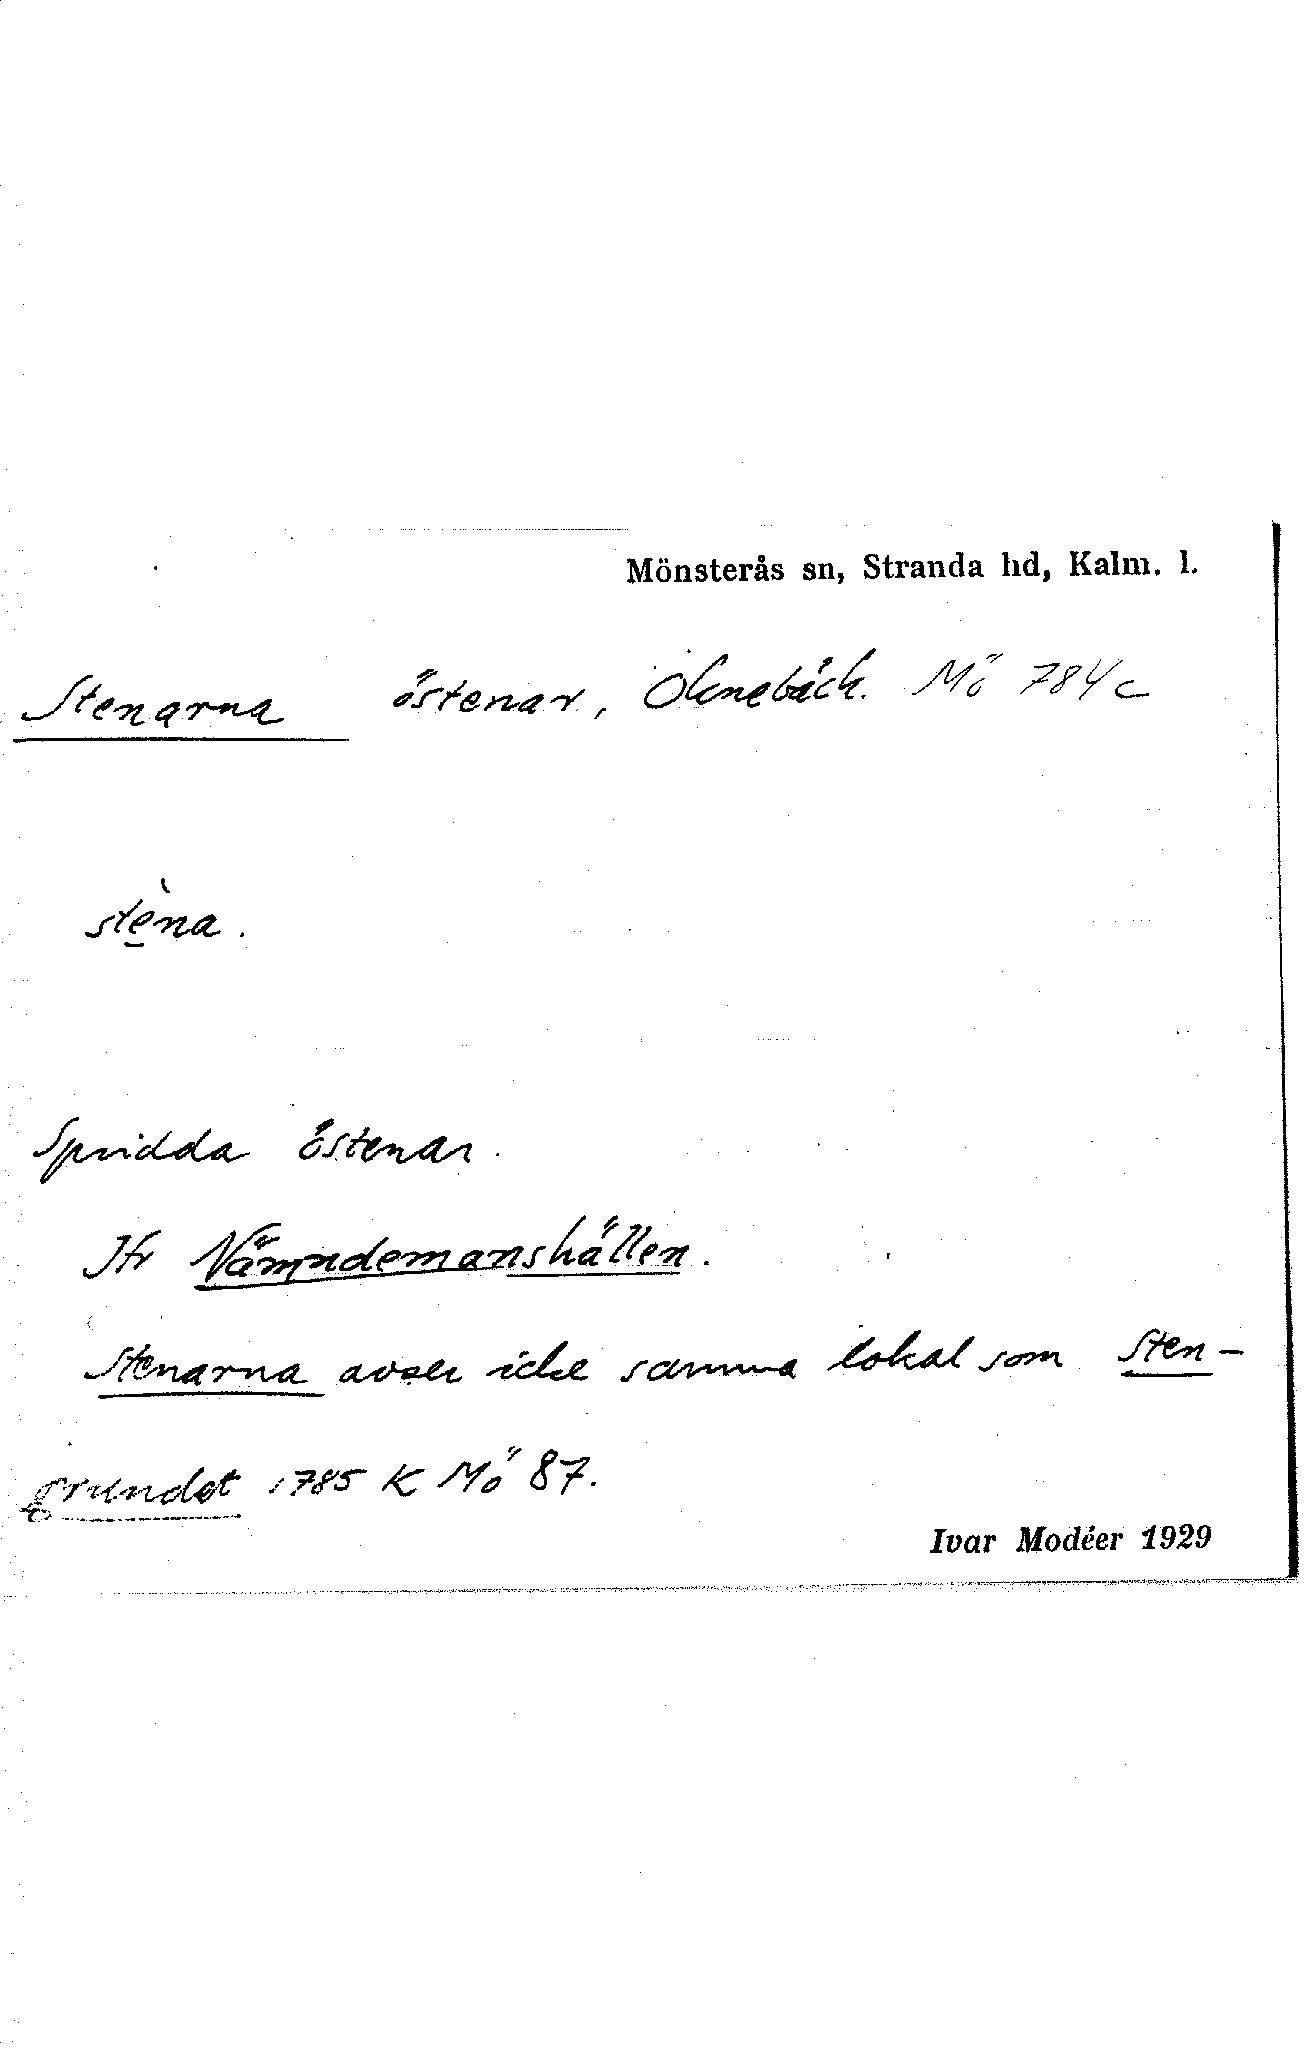 Mönsterås sn, Stranda hd, Kalm. l.
Stenarna östenar, Oknebäck. Mö 784c
stèna.
Spridda östenar.
Jfr Nämndemanshällen.
Stenarna avser icke samma lokal som Sten-
grundet 1785 K Mö 87.
Ivar Modéer 1929